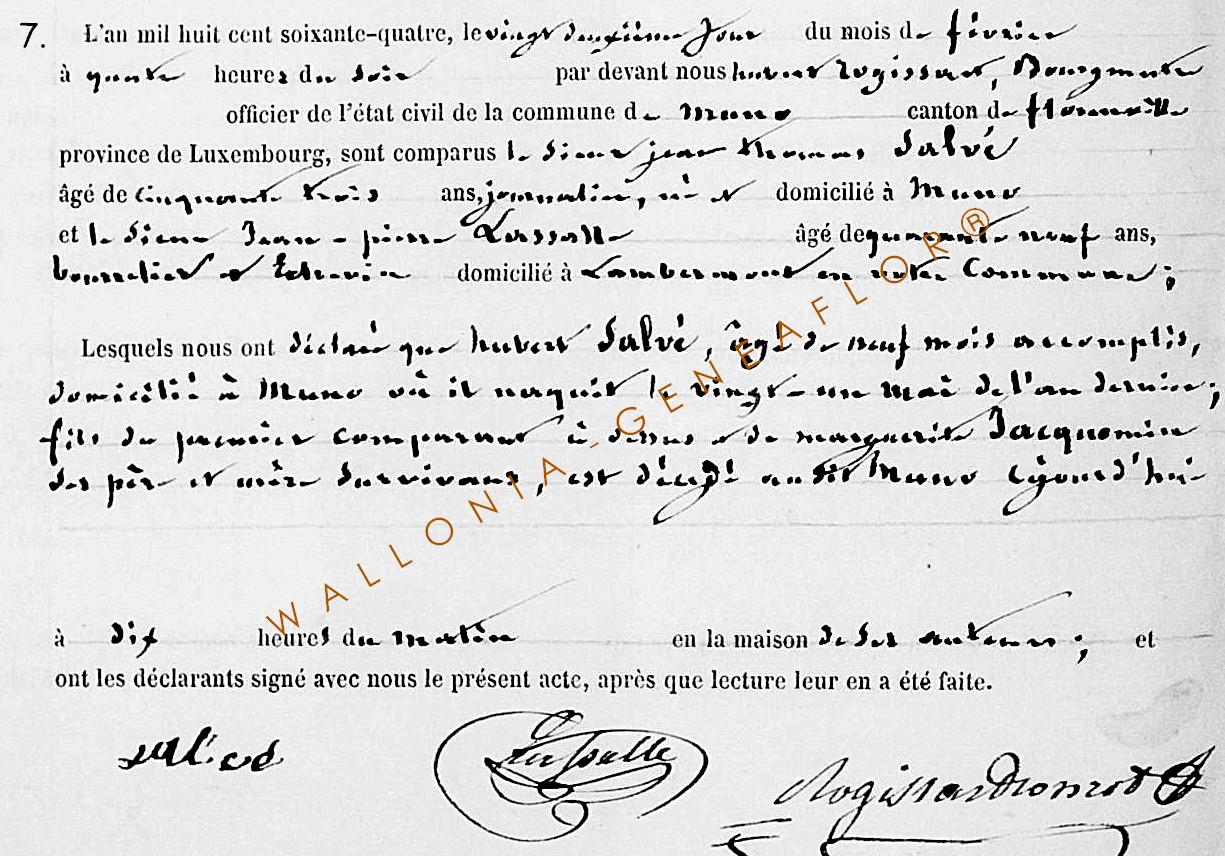 7. L'an mil huit cent soixante-quatre, le vingt deuxième jour du mois de février
à quatre heures du soir par devant nous hubert Rogissart, Bourgmestre
officier de l'état civil de la commune de Muno canton de florenville
province de Luxembourg, sont comparus le sieur jean thomas Salvé
âgé de cinquante trois ans, journalier, né et domicilié à Muno
et le sieur Jean-pierre Lassalle âgé de quarante neuf ans,
et Echevin domicilié à Lambermont en notre Commune;
Lesquels nous ont déclaré que hubert Salvé, âgé de neuf mois accomplis,
domicilié à Muno où il naquit le vingt-un mai de l'an dernier;
fils du premier comparant ci dessus et de marguerite Jacquemin
ses père et mère survivans, est décédé audit Muno cejourd'hui
à dix heures du matin en la maison de ses auteurs; et
ont les déclarants signé avec nous le présent acte, après que lecture leur en a été faite.
Lassalle
WALLONIA-GENEAFLOR®